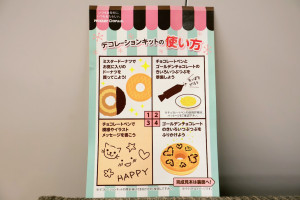 デコレーションキットの使い方
ミスタードーナツで
お気に入りの
ドーナツを
買ってこよう!
チョコレートペンと
ゴールデンチョコレートの
きいろいつぶつぶを
準備しよう
1 2
3 4
チョコレートペンで
模様やイラスト
メッセージを描こう
HAPPY
ゴールデンチョコレート
のきいろいつぶつぶを
ふりかけよう
完成見本は裏面へ!